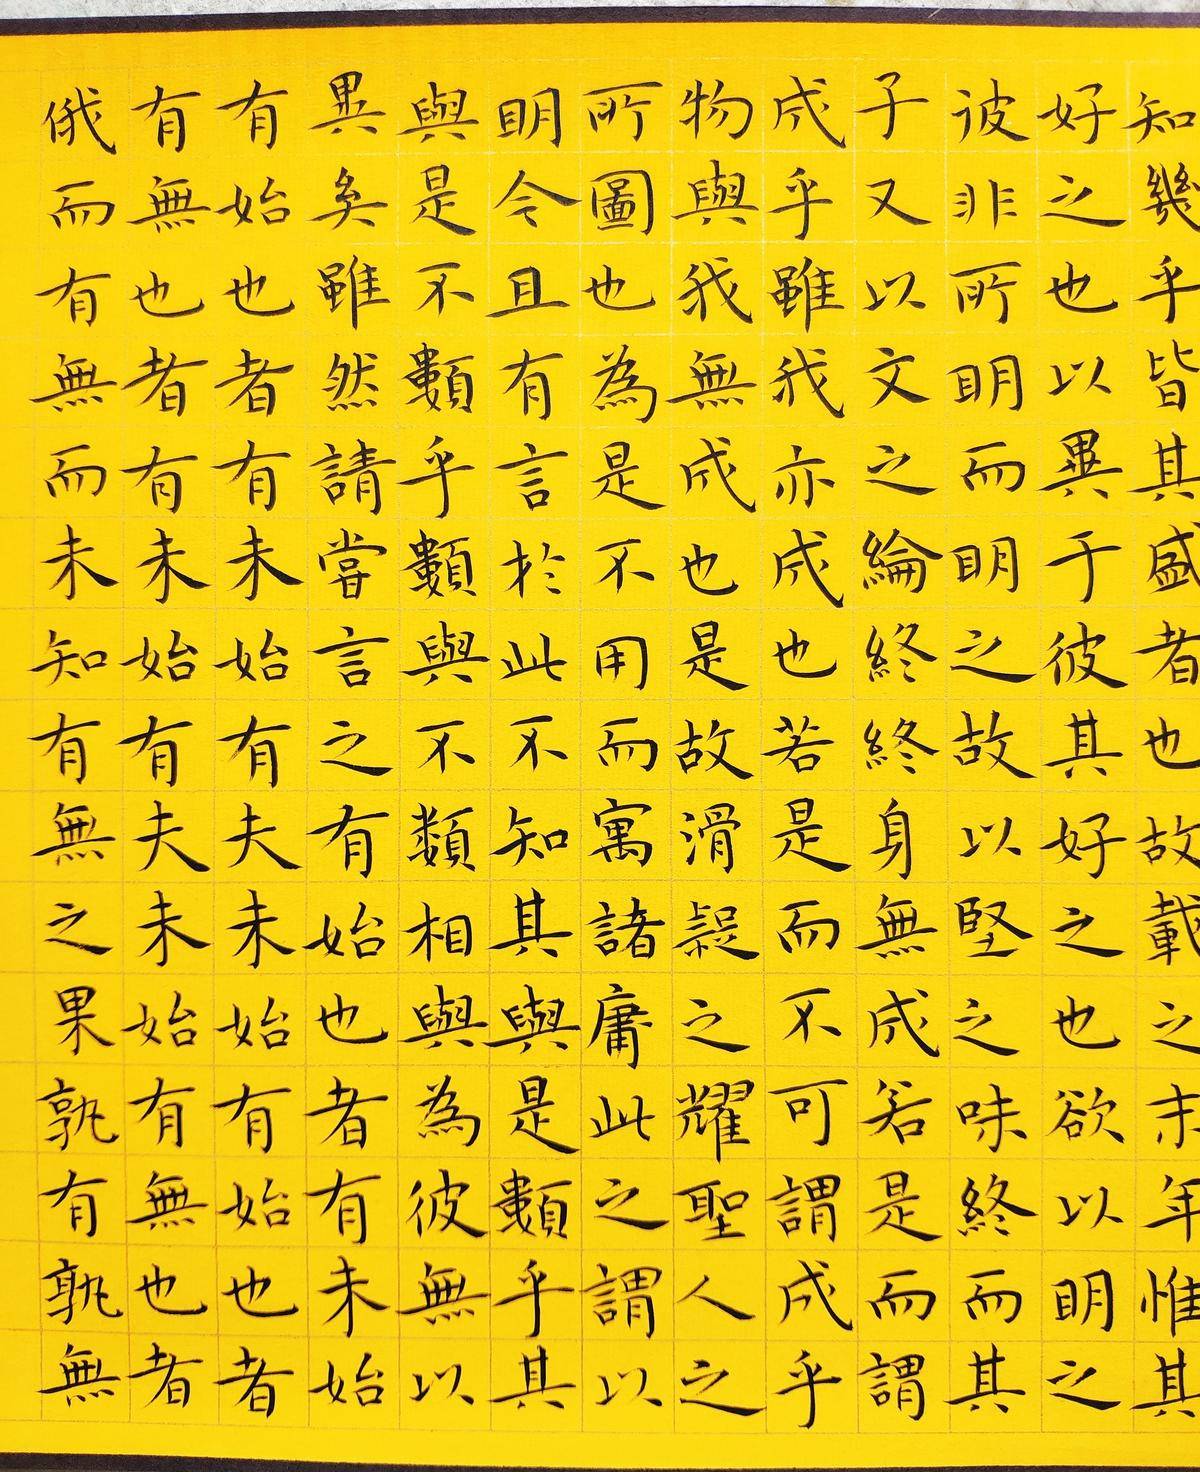 知幾乎皆其盛者也故載之末年惟其
好之也以異于彼其好之也欲以明之
彼非所明而明之故以堅之味終而其
子又以文之綸終終身無成若是而謂
成乎雖我亦成也若是而不可謂成乎
物與我無成也是故滑疑之耀聖人之
所圖也為是不用而寓諸庸此之謂以
明今且有言於此不知其與是類乎其
與是不類乎類與不類相與為彼無以
異矣雖然請嘗言之有始也者有未始
有始也者有未始有夫未始有始也者
有無也者有未始有夫未始有無也者
俄而有無而未知有無之果孰有孰無